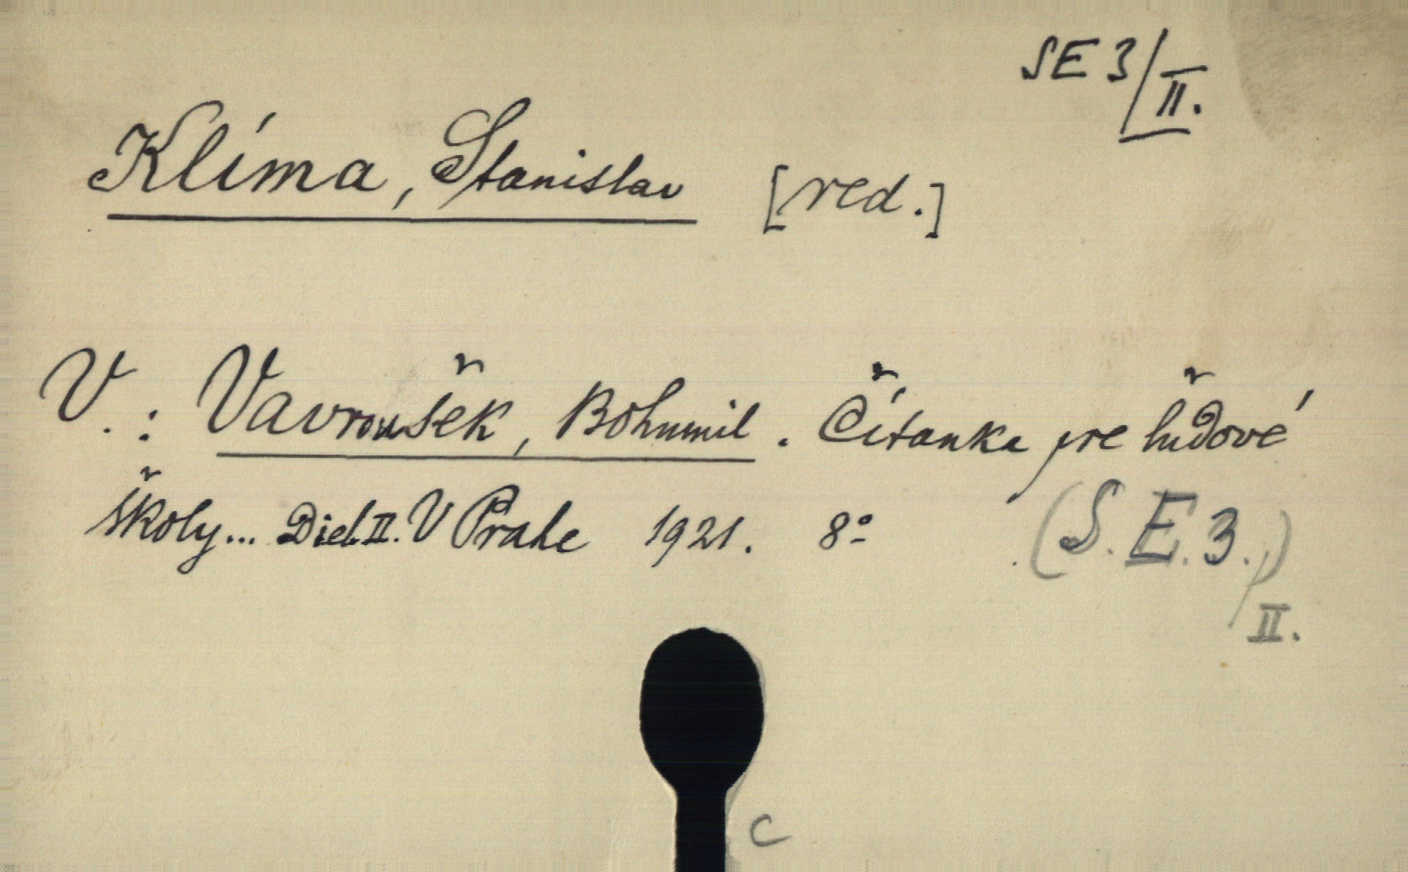 SE 3/II.
Klíma, Stanislav [red.]
V.: Vavroušek, Bohumil. Čítanka pre ľudové
školy... Diel II. V Prahe 1921. 8º (S.E.3.)/II.
C